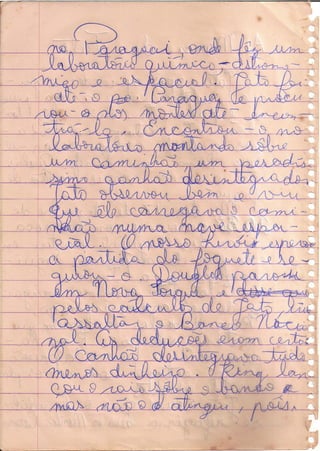 no Paraguai, onde fêz um
laboratório químico-astronô-
mico e espacial. Jato foi
até o Paraguai e procu
rou-o por montes até encon
trá-lo. Encontrou-o no
laboratório montando sôbre
um caminhão um pesadís
simo canhão desintegrador
Jato observou bem e viu
que êle carregava o cami-
nhão numa nave espa-
cial. O nosso herói esperou
a partida do foguete e se-
guiu-o. Douglas parou
em Nova Iorque e
pelos calculos de Jato iria
assaltar o Banco Nacio
nal. As deduções eram certas
O canhão desintegrava tudo
menos dinheiro. King lan
çou o raio sôbre o banco e
mas não o atingiu, pois,